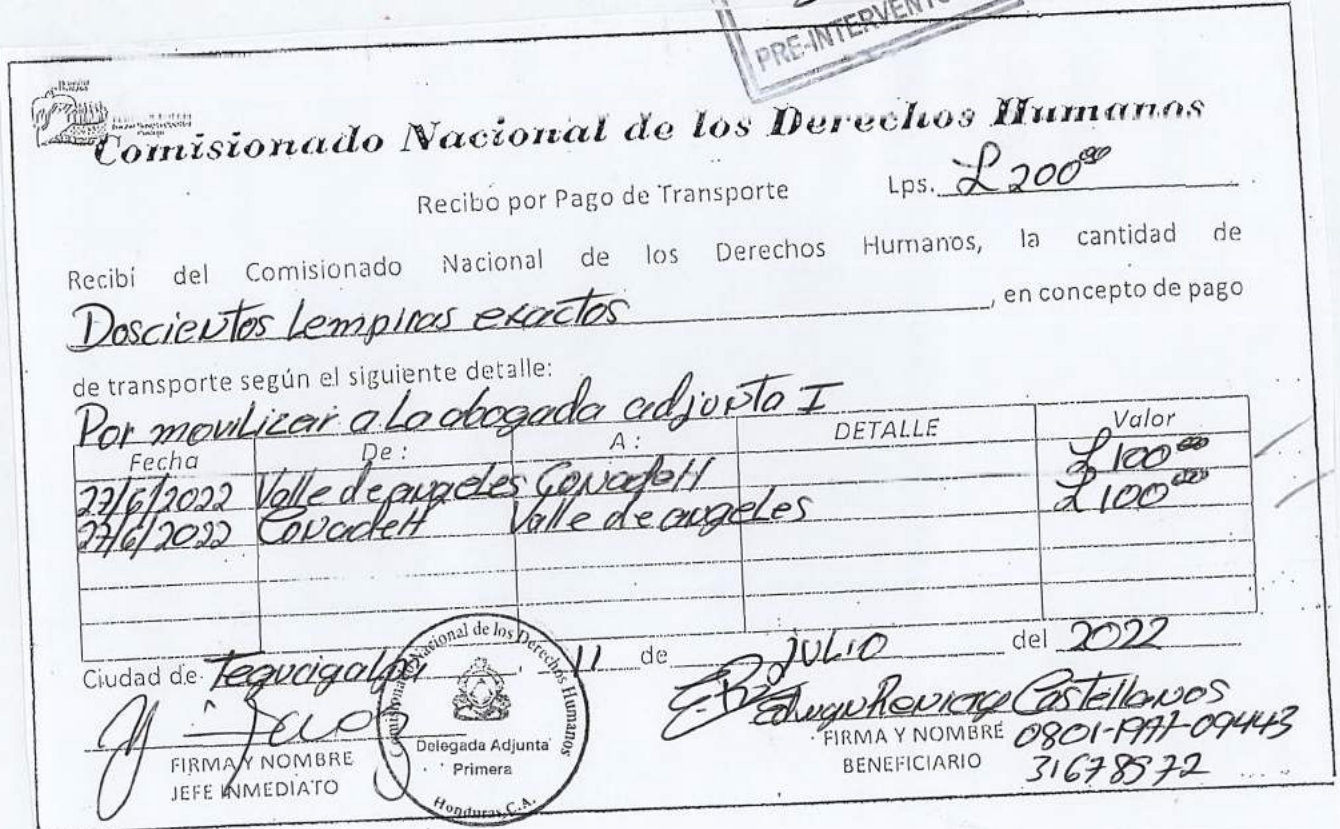 PRE-INTERVENTO
Comisionado Nacional de los Derechos Humanos
Recibo por Pago de Transporte Lps. L 200.00
Recibí del Comisionado Nacional de los Derechos Humanos, la cantidad de
Doscientos Lempiras exactos, en concepto de pago
de transporte según el siguiente detalle:
Por movilizar a La abogada adjunta I
Fecha De: A: DETALLE Valor
27/6/2022 Valle de angeles ConadeH L 100.00
27/6/2022 ConadeH Valle de angeles L 100.00
Ciudad de Tegucigalpa, 11 de JULIO del 2022
Comisionado Nacional de los Derechos Humanos
Delegada Adjunta
Primera
Honduras, C.A.
FIRMA Y NOMBRE
JEFE INMEDIATO
Castellanos
FIRMA Y NOMBRE
BENEFICIARIO
31678572